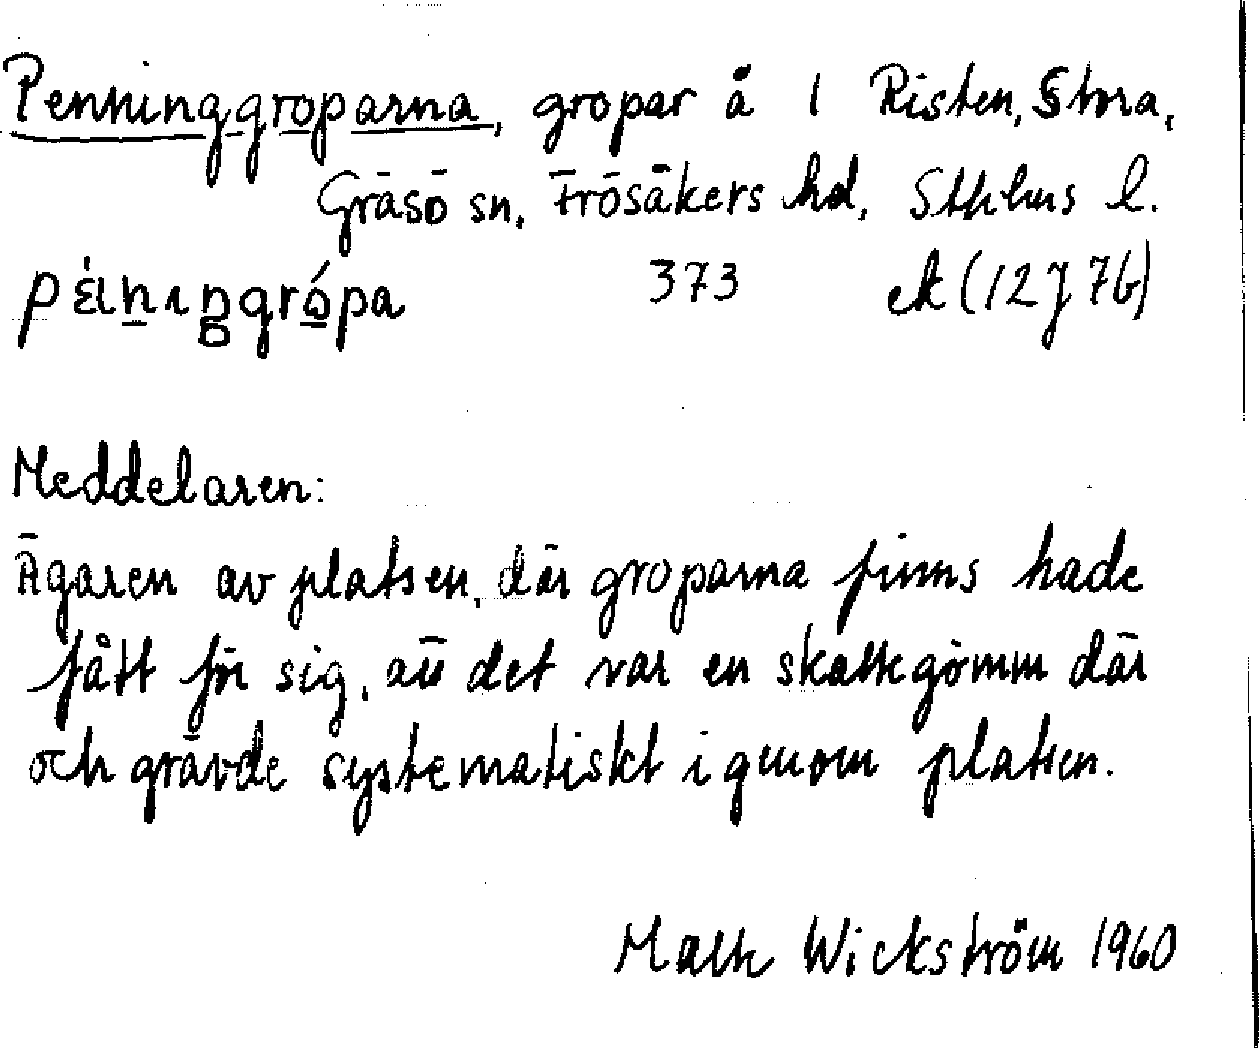 Penninggroparna, gropar å 1 Risten, Stora,
Gräsö sn, Frösåkers hd, Sthlms l.
373 ek (12J 7b)
Meddelaren:
Ägaren av platsen, där groparna finns hade
fått för sig, att det var en skattegömm där
och grävde systematiskt igenom platsen.
Wickström 1960